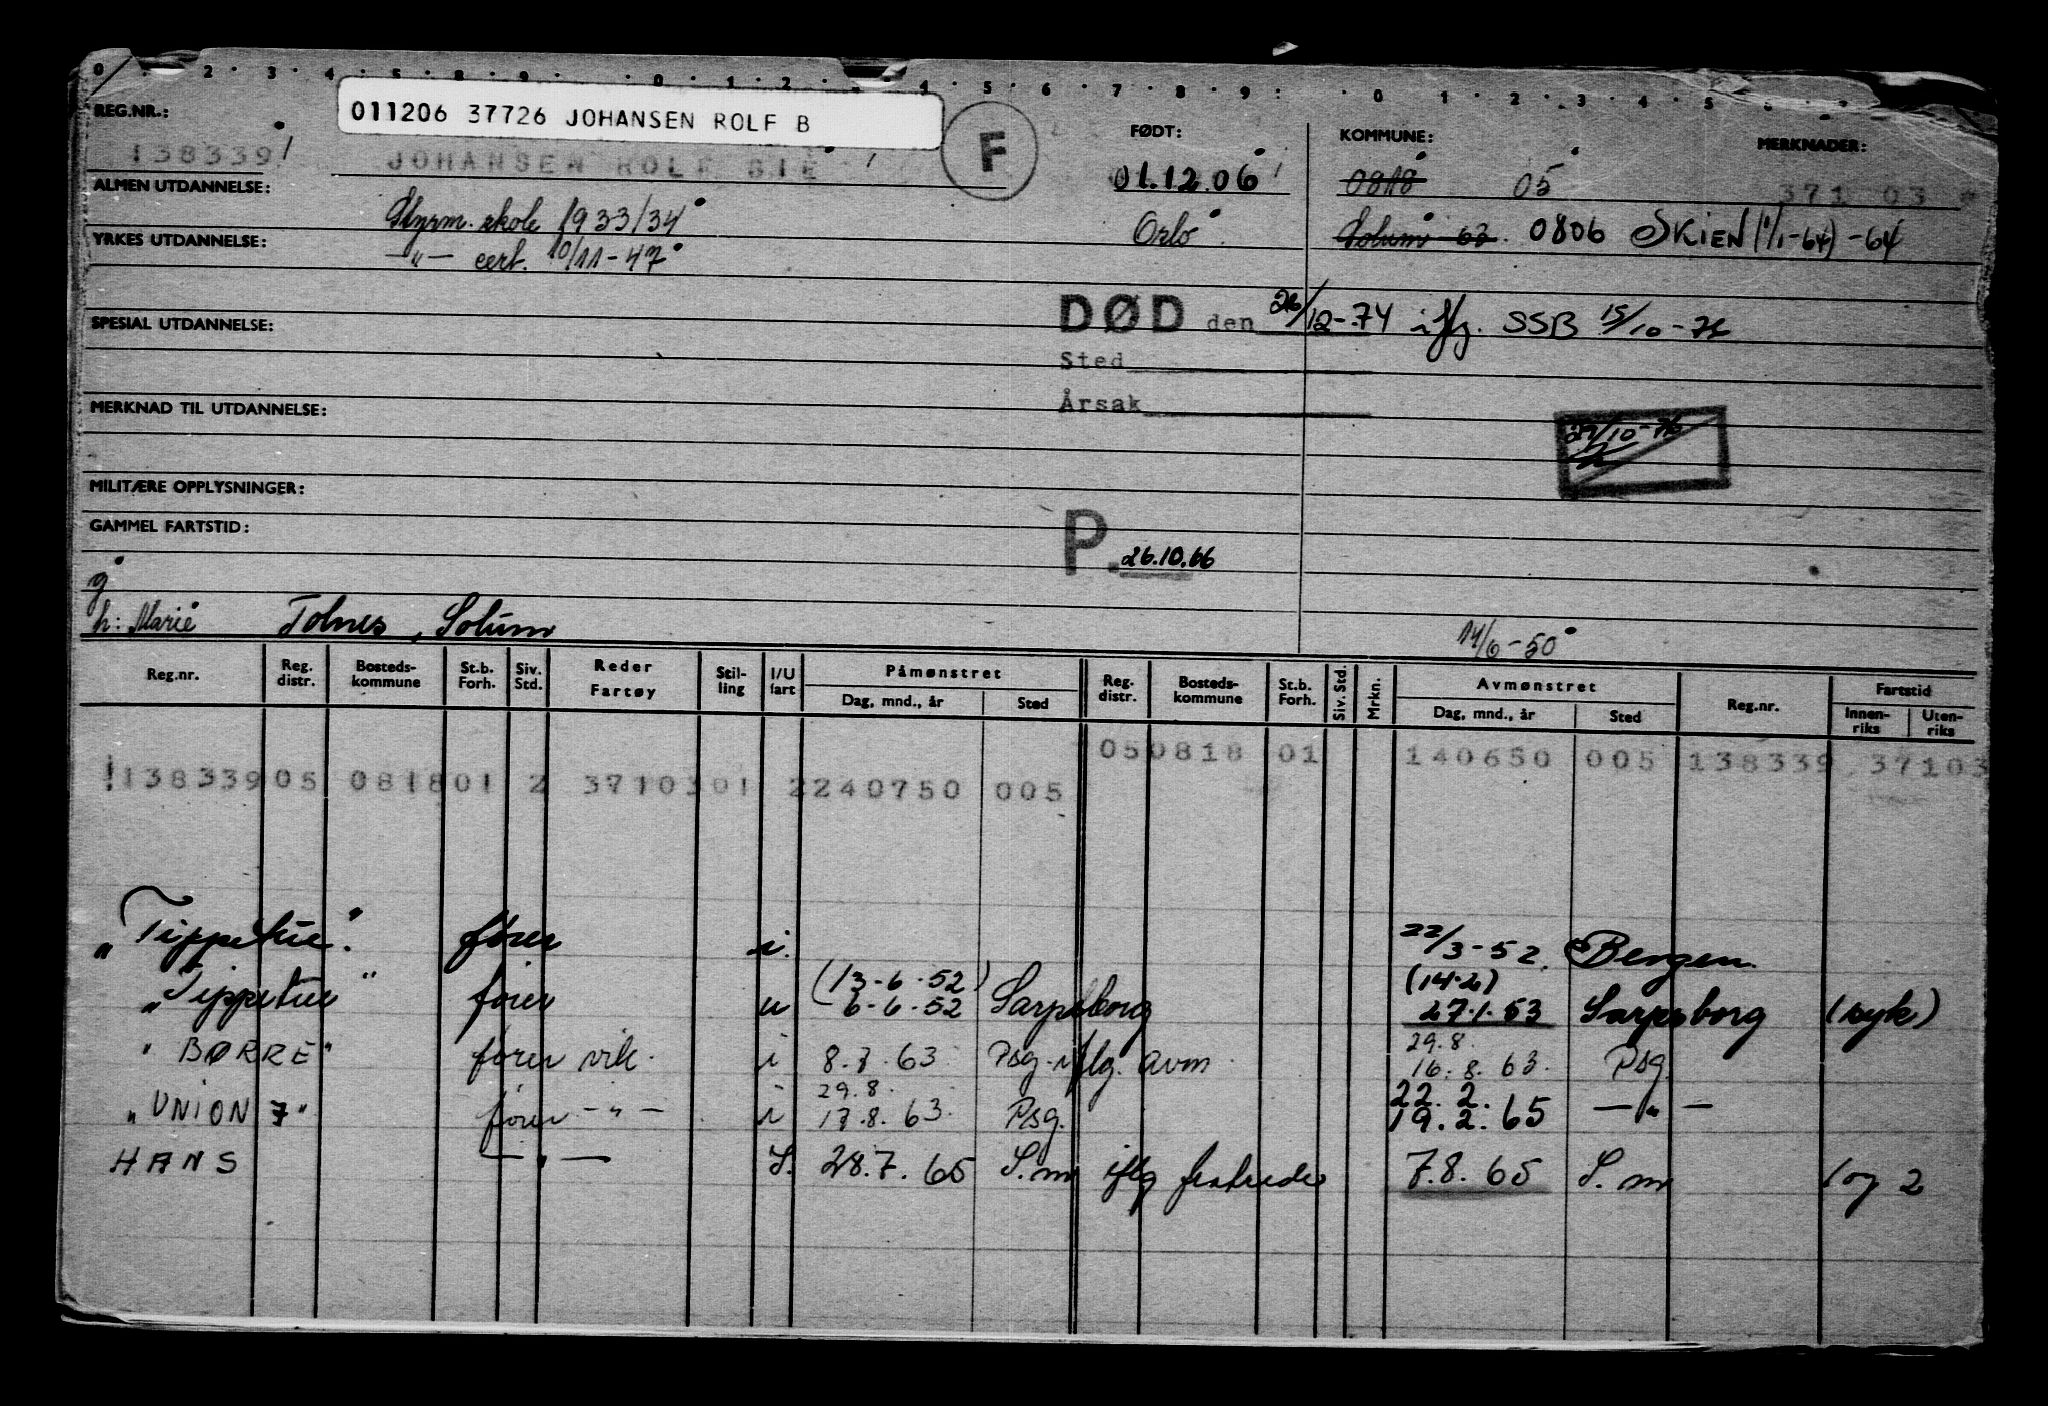 0 . 2 . 3 . 4 . 5 . 8 . 9 . . 0 . 1 . 2 . 3 . 4 . 5 . 6 . 7 . 8 . 9 : . 0 . 1 . 2 . 3 . 4 . 5
REG.NR.: 011206 37726 JOHANSEN ROLF B F FØDT: KOMMUNE: MERKNADER:
138339 JOHANSEN ROLF BIE 01.12.06 0818 05 371 03
ALMEN UTDANNELSE: Styrm. skole 1933/34 Oslo Solum 63. 0806 SKIEN (1/1-64) -64
YRKES UTDANNELSE: —"— cert. 10/11-47
DØD den 26/12-74 iflg. SSB 15/10-76
SPESIAL UTDANNELSE:
Sted
Årsak
MERKNAD TIL UTDANNELSE:
27/10-76
MILITÆRE OPPLYSNINGER:
GAMMEL FARTSTID:
P. 26.10.66
g
h: Marie Tolnes, Solum
14/6-50
Reg.nr. Reg. distr. Bosteds-kommune St.b. Forh. Siv. Std. Reder Fartøy Stil-ling I/U fart Påmønstret Reg. distr. Bosteds-kommune St.b. Forh. Siv. Std. Mrkn. Avmønstret Reg.nr. Fartstid
Dag, mnd., år Sted Dag, mnd., år Sted Innen-riks Uten-riks
050818 01 140650 005 138339 37103
138339 05 0818 01 2 3710301 2 240750 005
"Tippetue". fører i. 22/3-52. Bergen
(13-6-52) (14-2)
"Tippetue" fører u 6-6-52 Sarpsborg 27.1.53 Sarpsborg (syk)
29.8.
"BØRRE" fører vik. i 8.7.63 Psg. iflg. avm 16.8.63. Psg.
29.8. 22.2.
"UNION 7" fører —"— i 17.8.63 Psg. 19.2.65 —"—
HANS —"— I. 28.7.65 S.m iflg fratreden 7.8.65 S.m 1 og 2